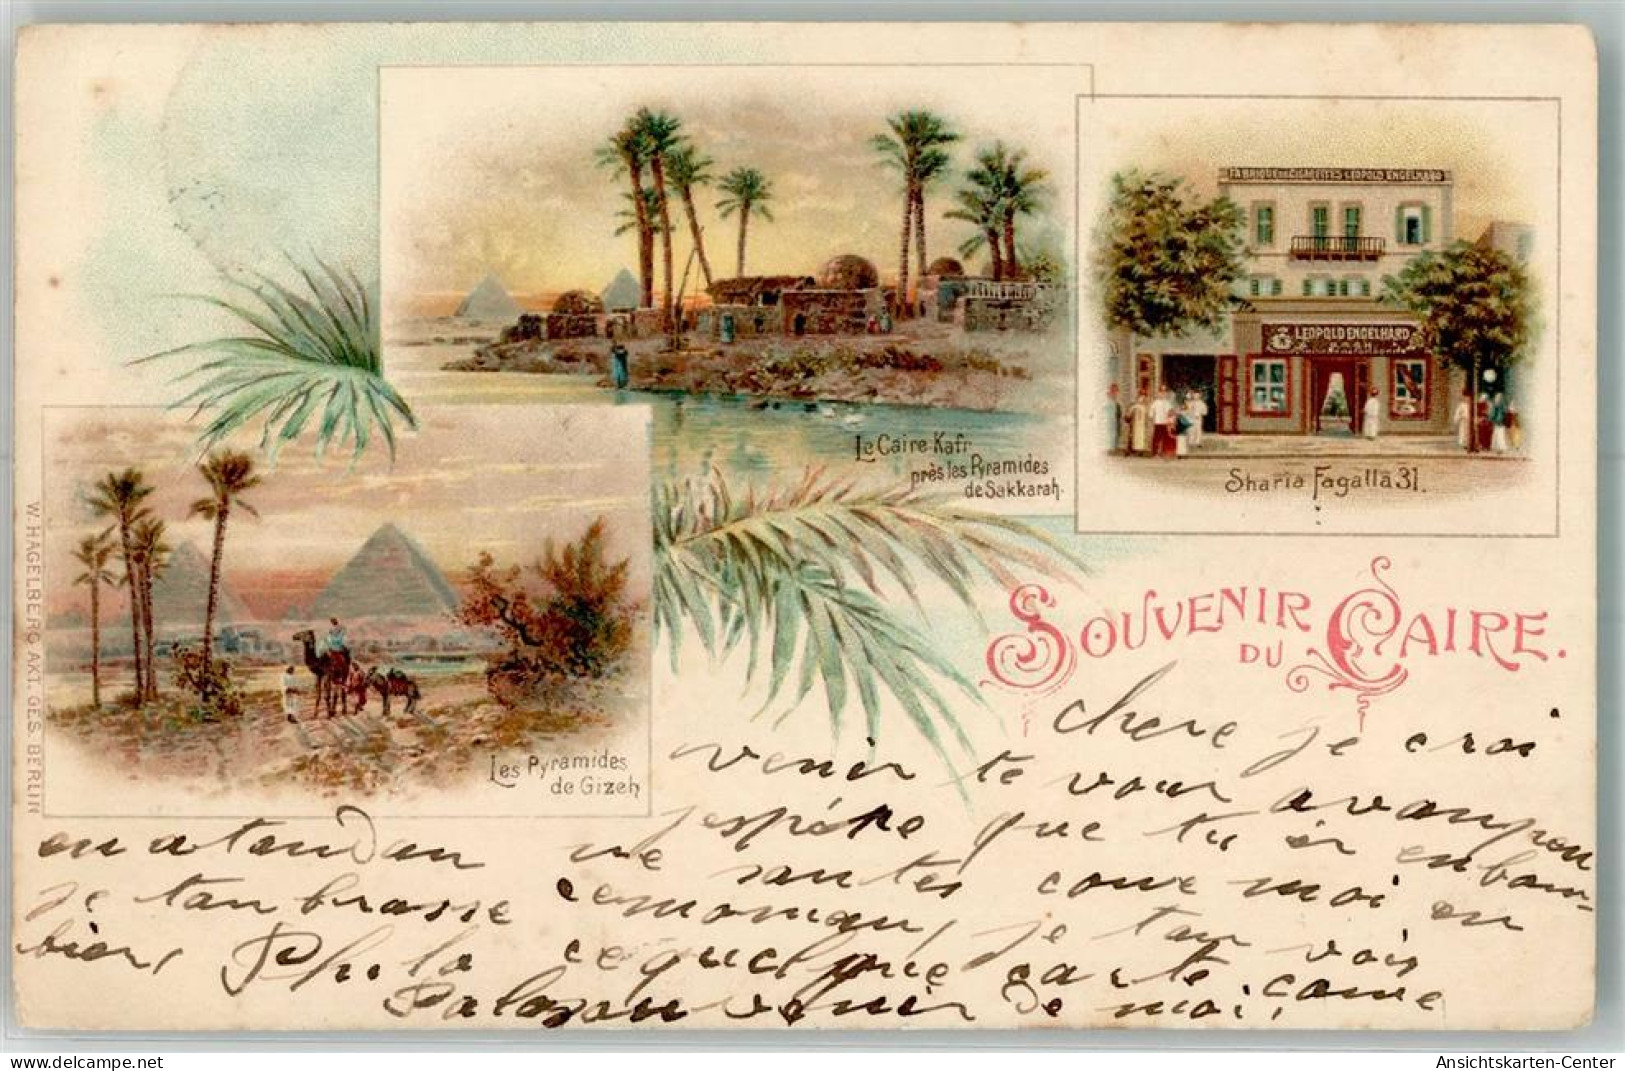 FABRIQUE DE CIGARETTES LEOPOLD ENGELHARD
LEOPOLD ENGELHARD
Le Caire Kafr
près les Pyramides
de Sakkarah.
Sharia Fagalla 31.
Les Pyramides
de Gizeh
W. HAGELBERG AKT. GES. BERLIN
SOUVENIR
DU CAIRE.
chere je croi
venir te voir avan
jespère que tu er en bom-
en atendan ne santés come moi en
je tanbrasse cemoman, je tan vois
bien, Philo ce quelque carte come
venir de moi,
www.delcampe.net
Ansichtskarten-Center